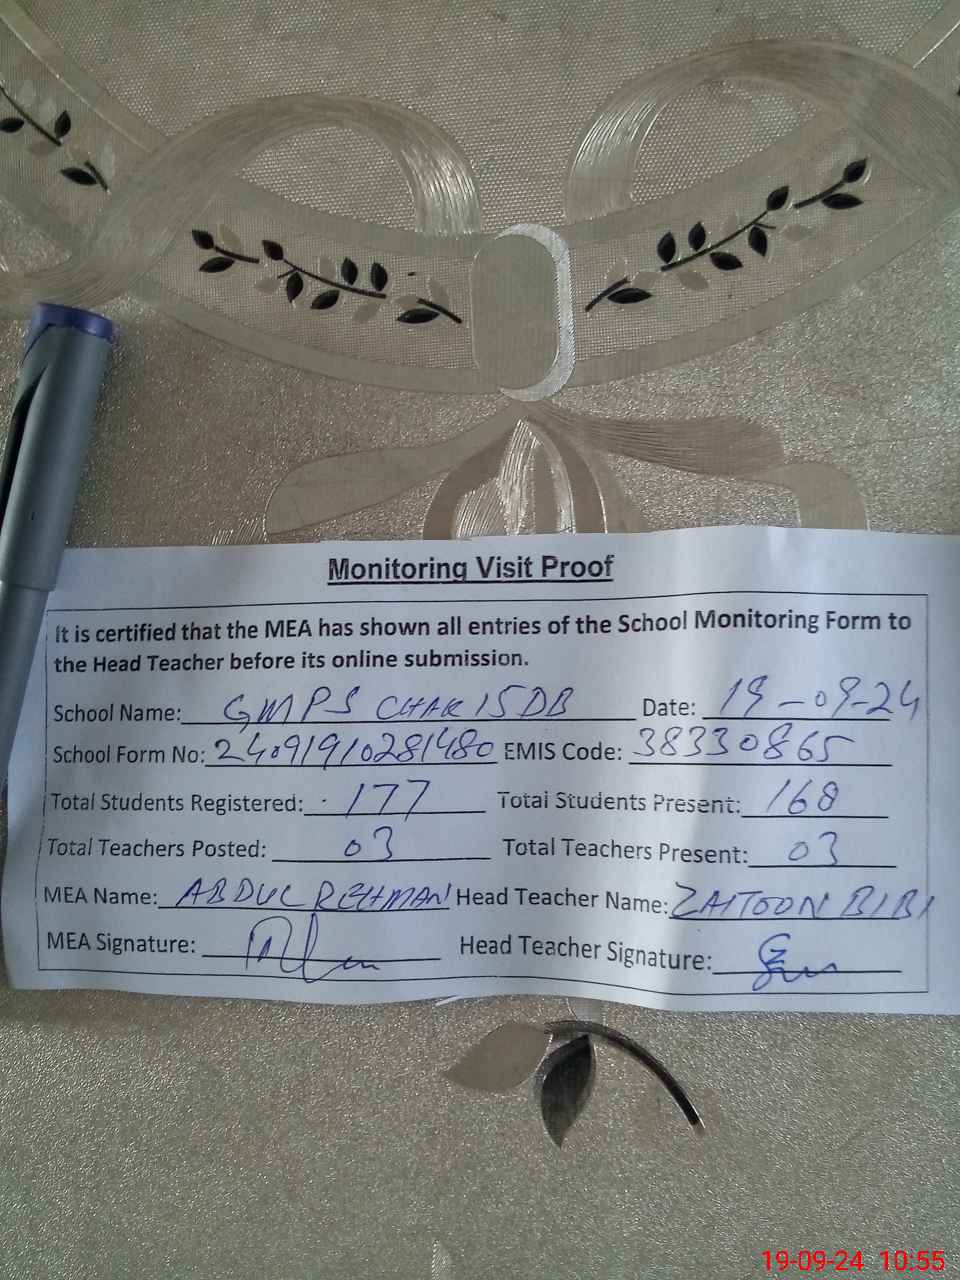 Monitoring Visit Proof
It is certified that the MEA has shown all entries of the School Monitoring Form to
the Head Teacher before its online submission.
School Name: GMPS CHAK 15 DB Date: 19-09-24
School Form No: 24091910281480 EMIS Code: 38330865
Total Students Registered: 177 Total Students Present: 168
Total Teachers Posted: 03 Total Teachers Present: 03
MEA Name: ABDUL REHMAN Head Teacher Name: ZAITOON BIBI
MEA Signature: Head Teacher Signature:
19-09-24 10:55